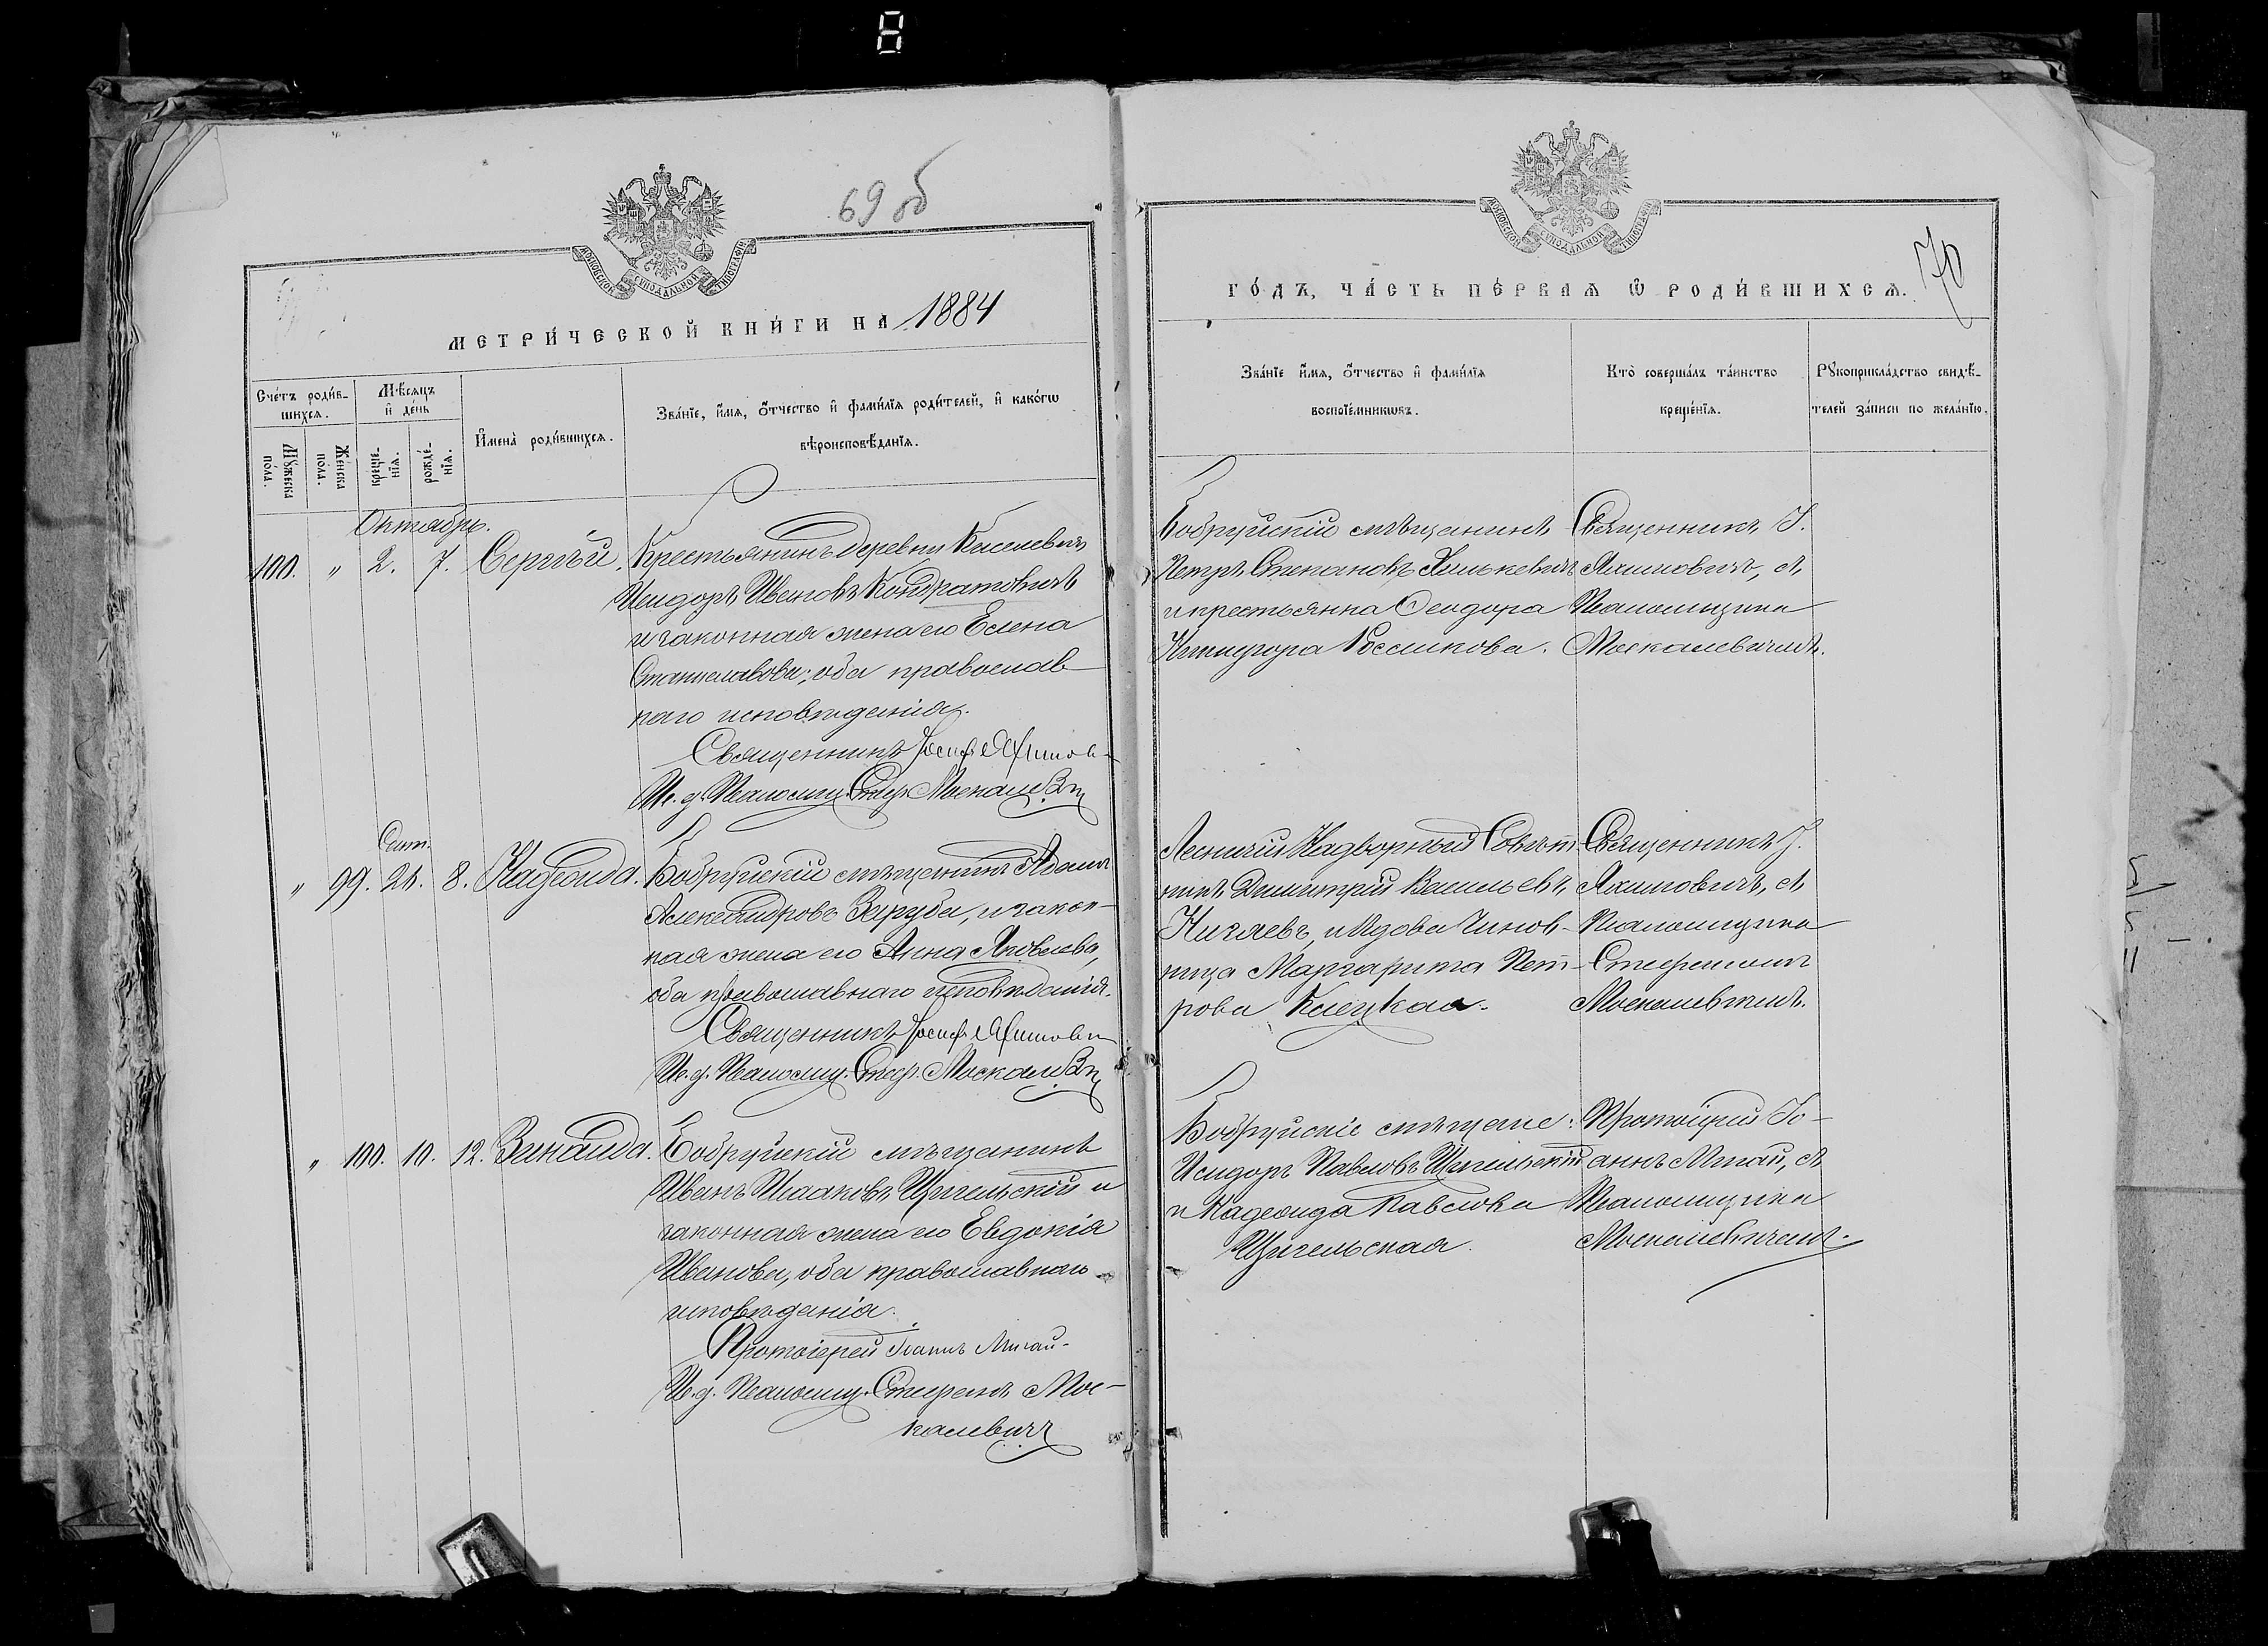 69 об
МОСКОВСКОЙ СѴНОДАЛЬНОЙ ТИПОГРАФІИ
МЕТРИ́ЧЕСКОЙ КНИ́ГИ НА 1884
Сче́тъ роди́в-
шихсѧ.
Мѣ́сѧцъ
и҆ де́нь
Мꙋ́жеска
по́ла.
Же́нска
по́ла.
креще́-
нїѧ.
рожде́-
нїѧ.
И҆мена̀ роди́вшихсѧ.
Зва́нїе, и҆́мѧ, ѻ҆́тчество и҆ фами́лїѧ роди́телей, и҆ како́гѡ
вѣроисповѣ́данїѧ.
Октябрь.
100. " 2. 7. Сергѣй. Крестьянинъ деревни Киселевичъ
Исидоръ Ивановъ Кондратовичъ
и законная жена его Елена
Станиславова; оба православ-
наго исповѣданія.
Священникъ Іосифъ Яхимов
И. д. Псаломщ. Стеф. Москалевич
Сент.
" 99. 24. 8. Надежда. Бобруйскій мѣщанинъ Адамъ
Александровъ Заруба, и закон-
ная жена его Анна Яковлева,
оба православнаго исповѣданія.
Священникъ Іосифъ Яхимович
И. д. Псаломщ. Стеф. Москалевич
" 100. 10. 12. Зинаида. Бобруйскій мѣщанинъ
Иванъ Исааковъ Щигельскій и
законная жена его Евдокія
Иванова, оба православнаго
исповѣданія.
Протоіерей Іоаннъ Мигай.
И. д. Псаломщ. Стефанъ Мос-
калевичъ
70
МОСКОВСКОЙ СѴНОДАЛЬНОЙ ТИПОГРАФІИ
ГО́ДЪ, ЧА́СТЬ ПЕ́РВАѦ Ѡ҆ РОДИ́ВШИХСѦ.
Зва́нїе и҆́мѧ, ѻ҆́тчество и҆ фами́лїѧ
воспрїе́мникѡвъ.
Кто̀ соверша́лъ та́инство
креще́нїѧ.
Рꙋкоприкла́дство свидѣ́-
телей за́писи по жела́нїю.
Бобруйскій мѣщанинъ
Петръ Степановъ Хилькевичъ
и крестьянка Ѳеодора
Никифора
Священникъ І.
Яхимовичъ, съ
Псаломщикомъ
Москалевичемъ.
Лѣсничій Надворный Совѣт-
никъ Димитрій Васильевъ
Нигаевъ, и вдова Чинов-
ница Маргарита Пет-
рова Клецкая.
Священникъ І.
Яхимовичъ, съ
Псаломщикомъ
Стефаномъ
Москалевичемъ.
Бобруйскіе мѣщане:
Исидоръ Павловъ Щигельскій
и Надежда Павлова
Щигельская.
Протоіерей Іо-
аннъ Мигай, съ
Псаломщикомъ
Москалевичемъ.